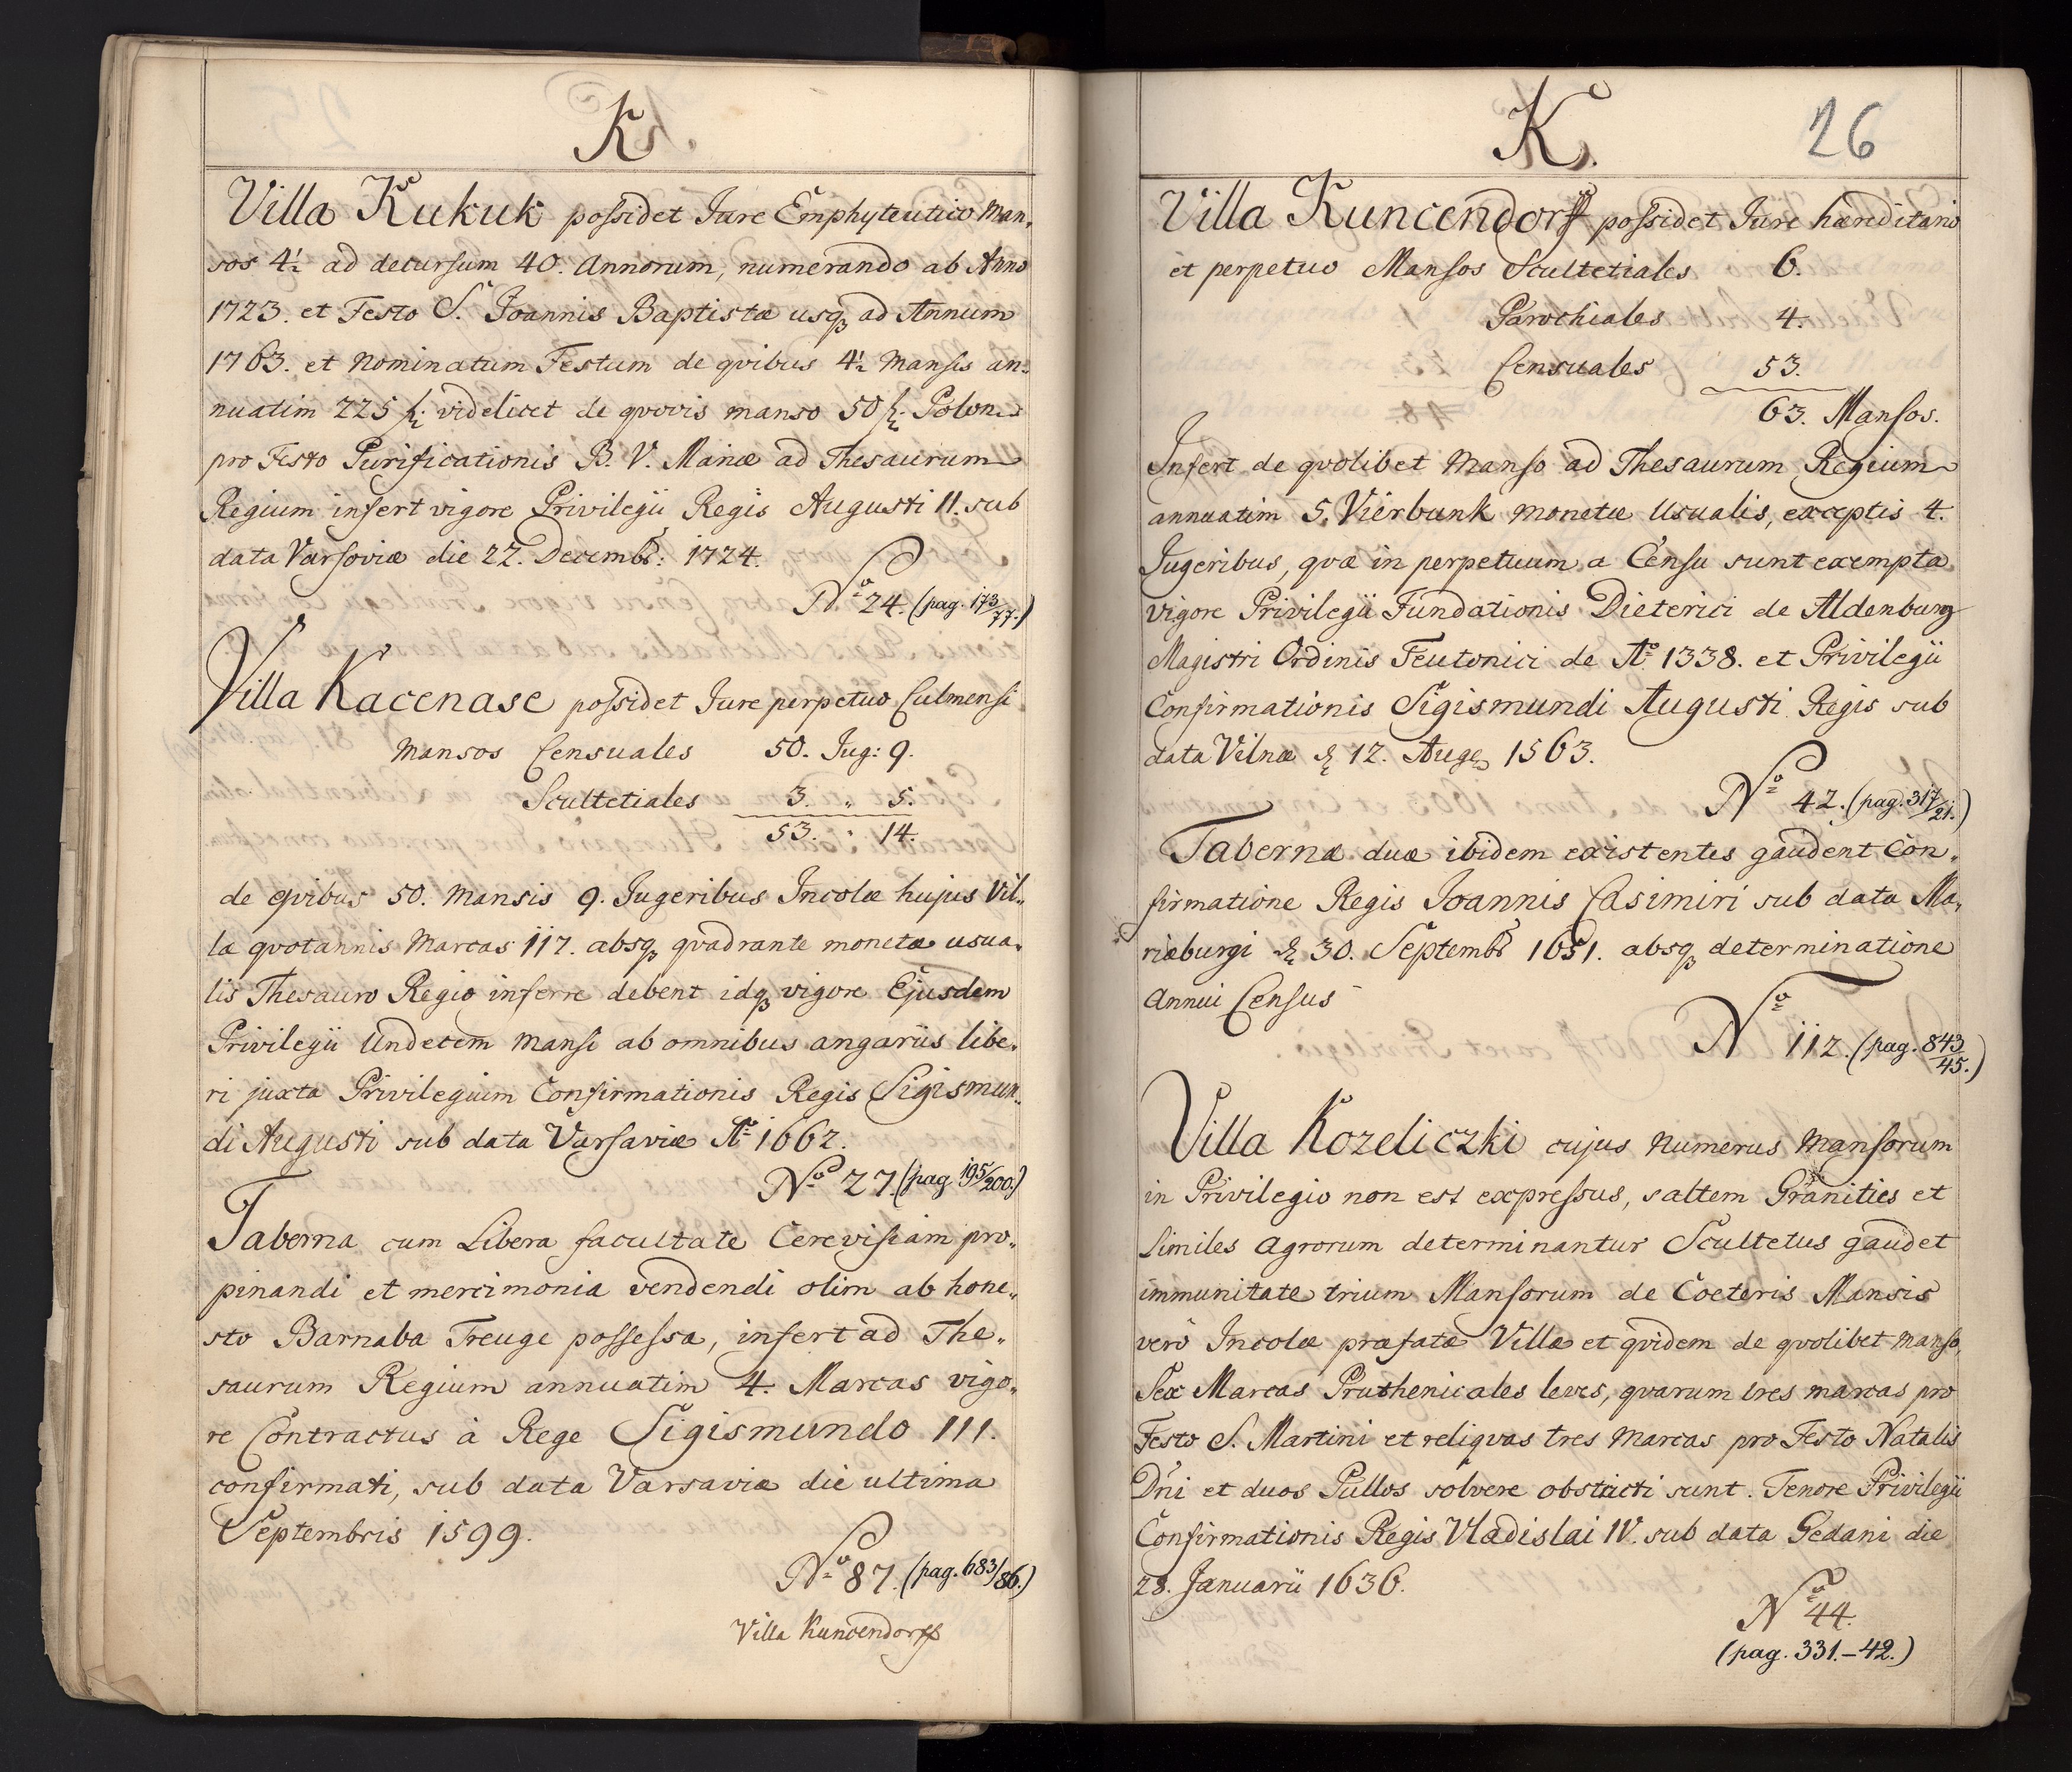 K.
Villa Kukuk possidet Jure Emphyteutico Man„
sos 4½ ad decursum 40. Annorum, numerando ab Anno
1723. et Festo S. Joannis Baptistæ usqꝫ ad Annum
1763. et Nominatum Festum de qvibus 4½ Mansis an„
nuatim 225 fl. videlicet de qvovis manso 50 fl. Polon.
pro Festo Purificationis B. V. Mariæ ad Thesaurum
Regium infert vigore Privilegii Regis Augusti II. sub
data Varsoviæ die 22. Decembr: 1724.
No 24. (pag. 173/77.)
Villa Kacenase possidet Jure perpetuo Culmensi
Mansos Censuales 50. Jug: 9.
Scultetiales 3. „ 5.
53. „ 14.
de qvibus 50. Mansis 9. Jugeribus Incolæ hujus Vil„
la qvotannis Marcas 117. absqꝫ qvadrante monetæ usua„
lis Thesauro Regio inferre debent idqꝫ vigore Ejusdem
Privilegii Undecem Mansi ab omnibus angariis libe„
ri juxta Privilegium Confirmationis Regis Sigismun„
di Augusti sub data Varsaviæ Ao 1662.
No 27. (pag. 195/200.)
Taberna cum Libera facultate Cerevisiam pro„
pinandi et mercimonia vendendi olim ab hone„
sto Barnaba Treuge possessa, infert ad The„
saurum Regium annuatim 4. Marcas vigo„
re Contractus à Rege Sigismundo III.
confirmati, sub data Varsaviæ die ultima
Septembris 1599.
No 87. (pag. 683/86.)
Villa Kuncendorff
K.
26
Villa Kuncendorff possidet Jure hæreditario
et perpetuo Mansos Scultetiales 6.
Parochiales 4.
Censuales 53.
63. Mansos.
Infert de qvolibet Manso ad Thesaurum Regium
annuatim 5. Vierbunk Monetæ Usualis, exceptis 4.
Jugeribus, qvæ in perpetuum a Censu sunt exempta
vigore Privilegii Fundationis Dieterici de Aldenburg
Magistri Ordinis Teutonici de Ao 1338. et Privilegii
Confirmationis Sigismundi Augusti Regis sub
data Vilnæ d. 12. Aug. 1563.
No 42. (pag. 317/21.)
Tabernæ duæ ibidem existentes gaudent Con„
firmatione Regis Joannis Casimiri sub data Ma„
riæburgi d. 30. Septembr 1651. absqꝫ determinatione
Annui Census
No 112. (pag. 843/45.)
Villa Kozeliczki cujus Numerus Mansorum
in Privilegio non est expressus, saltem Granities et
Limites Agrorum determinantur Scultetus gaudet
immunitate trium Mansorum de Cœteris Mansis
verò Incolæ præfatæ Villæ et qvidem de qvolibet Manso,
Sex Marcas Pruthenicales leves, qvarum tres marcas pro
Festo S. Martini et reliqvas tres Marcas pro Festo Natalis
Dni et duos Pullos solvere obstricti sunt. Tenore Privilegii
Confirmationis Regis Vladislai IV. sub data Gedani die
28. Januarii 1636.
No 44.
(pag. 331.–42.)